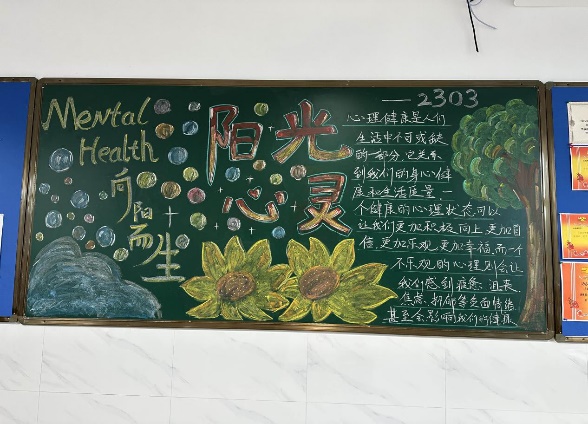 Mental
Health
向
阳
而
生
阳光
心灵
—2303
心理健康是人们
生活中不可或缺
的一部分,它关系
到我们的身心健
康和生活质量一
个健康的心理状态可以
让我们更加积极向上,更加自
信,更加乐观,更加幸福,而一个
不乐观的心理则会让
我们感到疲惫、沮丧
焦虑、抑郁等负面情绪,
甚至会影响我们的健康